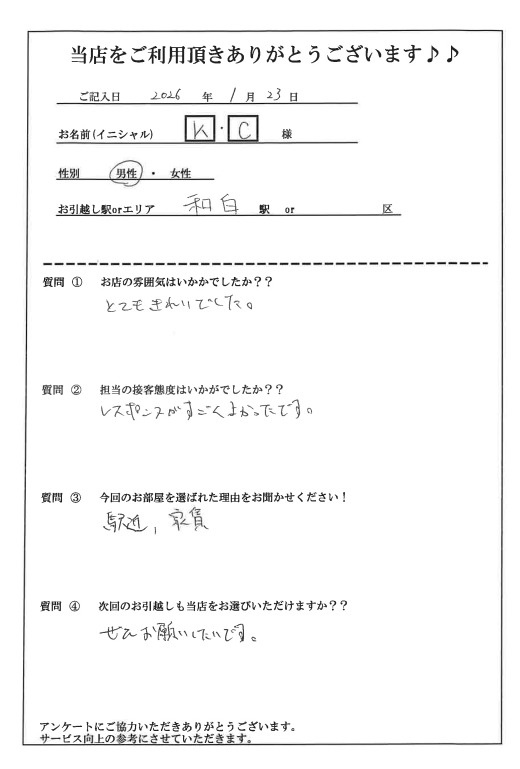 当店をご利用頂きありがとうございます♪♪
ご記入日 2026 年 1 月 23 日
お名前(イニシャル) K ・ C 様
性別 男性 ・ 女性
お引越し駅orエリア 和白 駅 or 区
質問 ① お店の雰囲気はいかかでしたか？？
とてもきれいでした。
質問 ② 担当の接客態度はいかがでしたか？？
レスポンスがすごくよかったです。
質問 ③ 今回のお部屋を選ばれた理由をお聞かせください！
駅近, 家賃
質問 ④ 次回のお引越しも当店をお選びいただけますか？？
ぜひお願いしたいです。
アンケートにご協力いただきありがとうございます。
サービス向上の参考にさせていただきます。